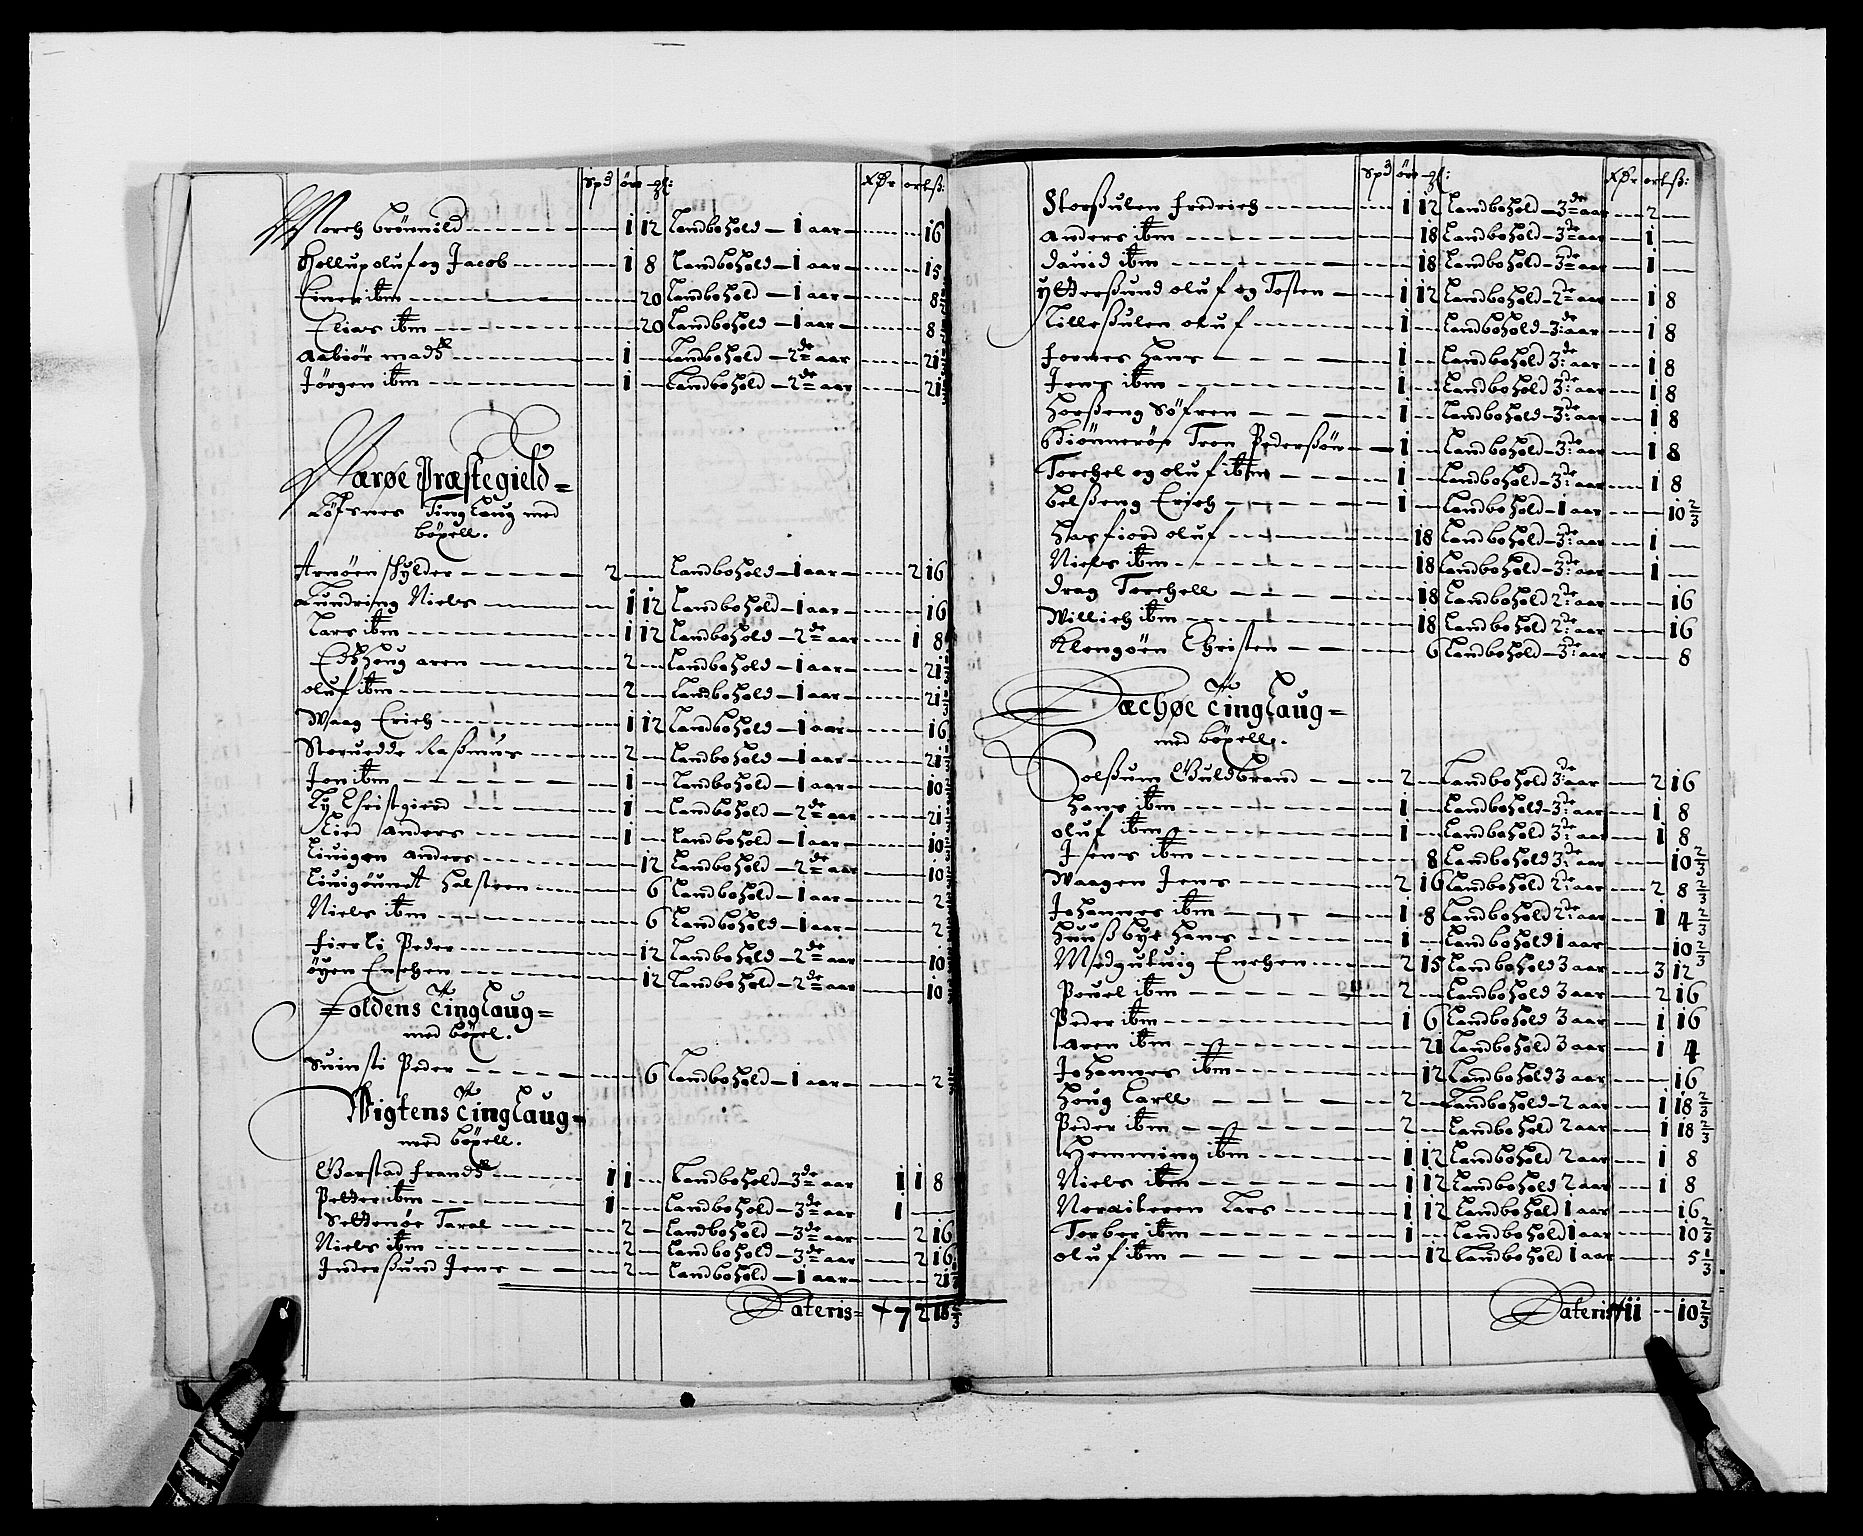 Spd ört gl: Rdr ort ß:
Morch Brönnild 1 12 Landbohold 1 aar 16
Hollup oluf og Jacob 1 8 Landbohold 1 aar 15
Einer ibm 20 Landbohold 1 aar 8
Elias ibm 20 Landbohold 1 aar 8
Aabiör madß 1 Landbohold 2de aar 21
Jörgen ibm 1 Landbohold 2de aar 21
Nærøe Præstegield
Löfsnes Tinglaug med
böxell.
Arnöen skylder 2 Landbohold 1 aar 2 16
Lundring Niels 1 12 Landbohold 1 aar 16
Lars ibm 1 12 Landbohold 2de aar 1 8
Edßhoug aren 2 Landbohold 1 aar 21 1/3
oluf ibm 2 Landbohold 1 aar 21 1/3
Waag Erich 1 12 Landbohold 1 aar 16
Storuedde Raßmus 2 Landbohold 1 aar 21
Jon ibm 1 Landbohold 1 aar 10
Ly Christgierd 1 Landbohold 2de aar 21
Lied Anders 1 Landbohold 1 aar 10
Liuigen Anders 12 Landbohold 2de aar 10
Halsteen 6 Landbohold 1 aar 2
Niels ibm 6 Landbohold 1 aar 2
Fierli Peder 12 Landbohold 2de aar 10
öyen Enchen 12 Landbohold 2de aar 10
Foldens Tinglaug
med böxel.
Suinsti Peder 6 Landbohold 1 aar 2
Wigtens Tinglaug
med böxell.
Garstad frandß 1 1 Landbohold 3de aar 1 1 8
Petter ibm 1 Landbohold 3de aar 1
Settenöe Taral 2 Landbohold 3de aar 2 16
Niels ibm 2 Landbohold 3de aar 2 16
Inderßund Jens 2 Landbohold 1 aar 21 1/3
Lateris 7 2 18 2/3
Spd ört gl: Rdr ort ß:
Storßulen fredrich 1 12 Landbohold 3de aar 2
Anders ibm 18 Landbohold 3de aar 1
Dauid ibm 18 Landbohold 3de aar 1
ytterßund oluf og Tosten 1 12 Landbohold 2de aar 1 8
Lilleßulen oluf 1 Landbohold 3de aar 1 8
fornes Hans 1 Landbohold 3de aar 1 8
Jens ibm 1 Landbohold 3de aar 1 8
Horßeng Söfren 1 Landbohold 3de aar 1 8
Tron Pederßön 1 Landbohold 3de aar 1 8
Torchel og oluf ibm 1 Landbohold 3de aar 1 8
Helßeng Erich 1 Landbohold 1 aar 10 2/3
Hasfiord oluf 18 Landbohold 3de aar 1
Niels ibm 18 Landbohold 3de aar 1
Drag Torchell 18 Landbohold 2de aar 16
Willich ibm 18 Landbohold 2de aar 16
Klengöen Christen 6 Landbohold 3de aar 8
Lechøe Tinglaug
med böxell.
Solßum Guldbrand 2 Landbohold 3de aar 2 16
Hans ibm 1 Landbohold 3de aar 1 8
oluf ibm 1 Landbohold 3de aar 1 8
Jens ibm 8 Landbohold 3de aar 10 2/3
Waagen Jens 2 16 Landbohold 2de aar 2 8 2/3
Johannes ibm 1 8 Landbohold 2de aar 1 4 2/3
Huußbye Hans 1 Landbohold 1 aar 10 2/3
Enchen 2 15 Landbohold 3 aar 3 12
Pouel ibm 2 Landbohold 3 aar 2 16
Peder ibm 1 6 Landbohold 3 aar 1 16
Aren ibm 21 Landbohold 3 aar 1 4
Johannes ibm 12 Landbohold 3 aar 16
Houg Carll 2 Landbohold 2 aar 1 18 2/3
Peder ibm 2 Landbohold 2 aar 1 18 2/3
Hemming ibm 1 12 Landbohold 2 aar 1 8
Niels ibm 1 12 Landbohold 2 aar 1 8
Lars 1 12 Landbohold 1 aar 16
Torber ibm 1 Landbohold 1 aar 10 2/3
oluf ibm 12 Landbohold 1 aar 5 1/3
Lateris 11 10 2/3